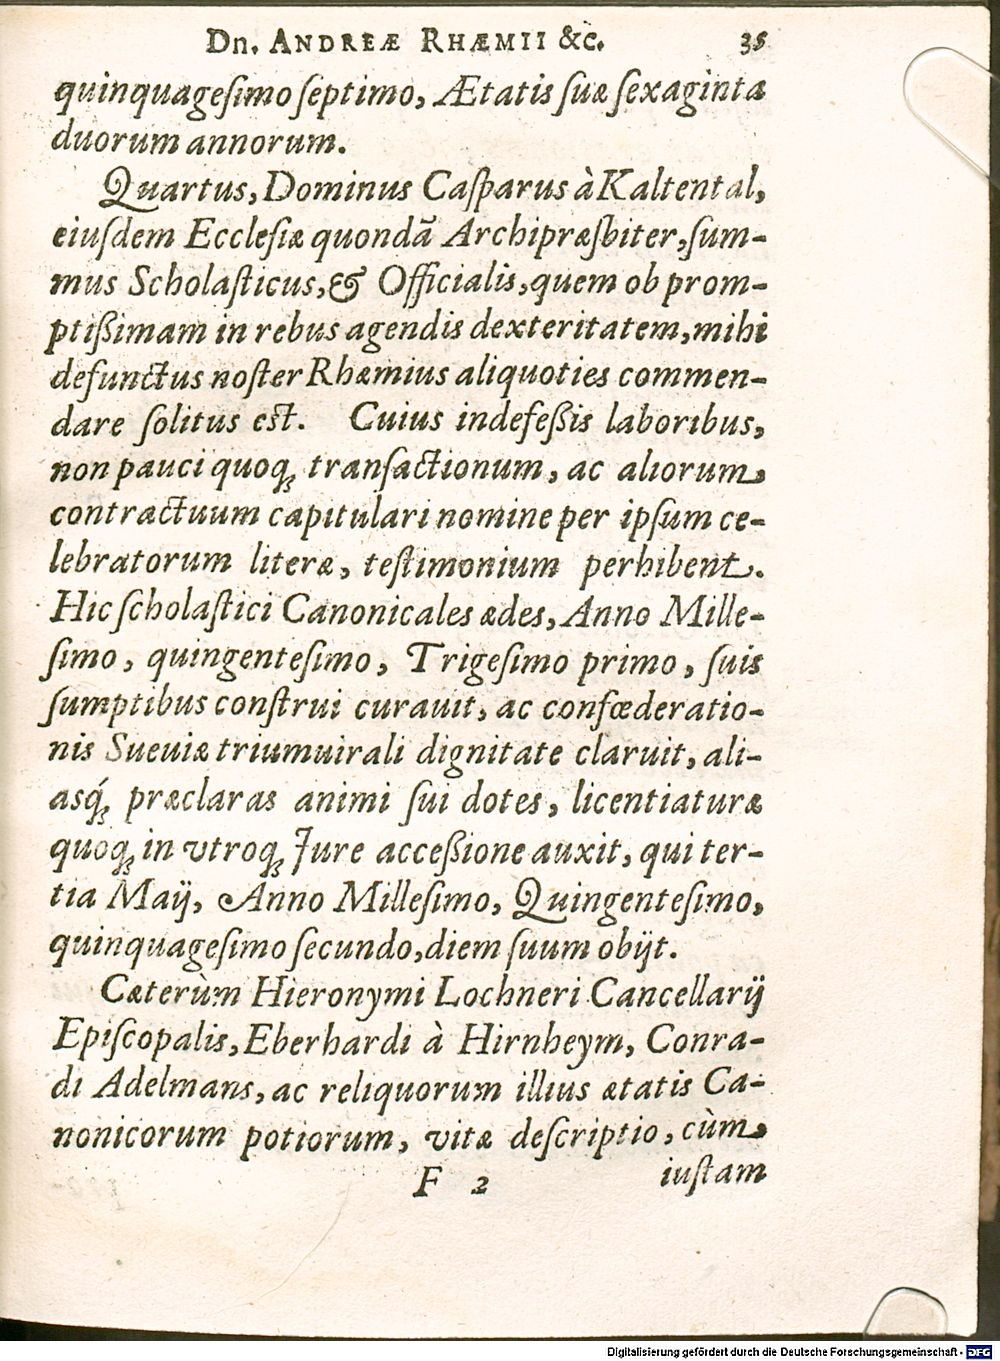 Dn. ANDREÆ RHÆMII &c. 35
quinquageſimo ſeptimo, Ætatis ſuæ ſexaginta
duorum annorum.
Quartus, Dominus Caſparus à Kaltental,
eiuſdem Eccleſiæ quondã Archipræſbiter, ſum-
mus Scholaſticus, & Officialis, quem ob prom-
ptißimam in rebus agendis dexteritatem, mihi
defunctus noſter Rhæmius aliquoties commen-
dare ſolitus eſt. Cuius indefeßis laboribus,
non pauci quoq; transactionum, ac aliorum
contractuum capitulari nomine per ipſum ce-
lebratorum literæ, teſtimonium perhibent.
Hic ſcholaſtici Canonicales ædes, Anno Mille-
ſimo, quingenteſimo, Trigeſimo primo, ſuis
ſumptibus conſtrui curauit, ac confœderatio-
nis Sueuiæ triumuirali dignitate claruit, ali-
asq́; præclaras animi ſui dotes, licentiaturæ
quoq; in vtroq; Jure acceßione auxit, qui ter-
tia Maij, Anno Milleſimo, Quingenteſimo,
quinquageſimo ſecundo, diem ſuum obijt.
Cæterùm Hieronymi Lochneri Cancellarij
Epiſcopalis, Eberhardi à Hirnheym, Conra-
di Adelmans, ac reliquorum illius ætatis Ca-
nonicorum potiorum, vitæ deſcriptio, cùm
F 2 iuſtam
Digitalisierung gefördert durch die Deutsche Forschungsgemeinschaft - DFG